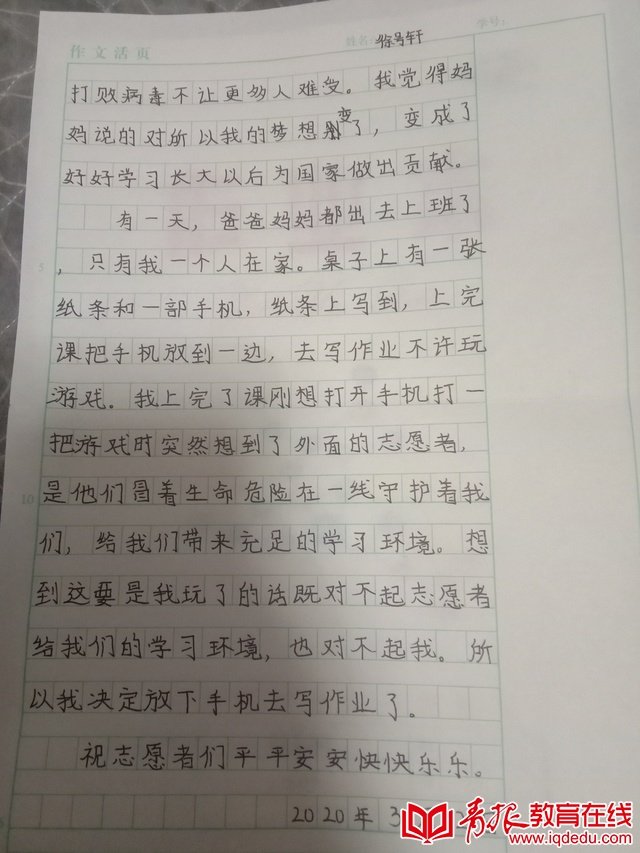 作文活页 姓名: 徐号轩 学号:
打败病毒不让更多人难受。我觉得妈
妈说的对所以我的梦想变了，变成了
好好学习长大以后为国家做出贡献。
有一天，爸爸妈妈都出去上班了
，只有我一个人在家。桌子上有一张
5
纸条和一部手机，纸条上写到，上完
课把手机放到一边，去写作业不许玩
游戏。我上完了课刚想打开手机打一
把游戏时突然想到了外面的志愿者，
是他们冒着生命危险在一线守护着我
10
们，给我们带来充足的学习环境。想
到这要是我玩了的话既对不起志愿者
给我们的学习环境，也对不起我。所
以我决定放下手机去写作业了。
祝志愿者们平平安安快快乐乐。
2020年3
青报教育在线
www.iqdedu.com